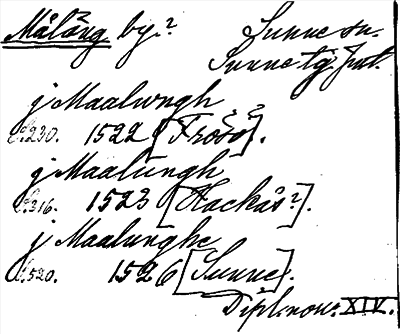 Målång by?
Sunne sn.
Sunne tg. Jmtl.
j Maalwngh
S. 230. 1522 [Frösö?].
j Maalungh
S. 316. 1523 [Hackås?].
j Maalunghe
S. 520. 1526 [Sunne].
Dipl. norv. XIV.